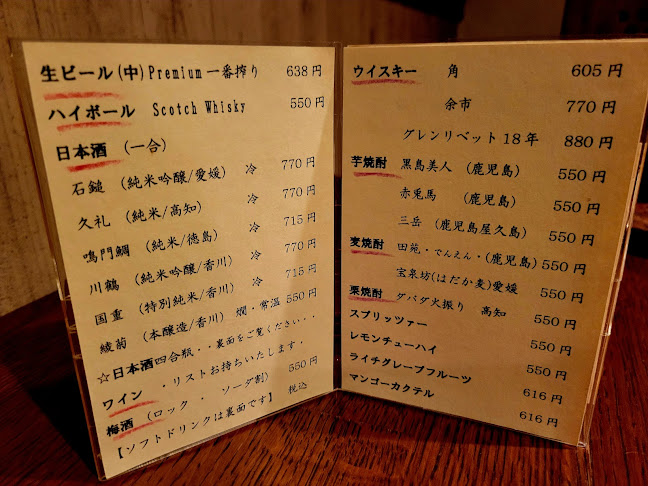 生ビール(中)Premium一番搾り 638円
ハイボール Scotch Whisky 550円
日本酒 (一合)
石鎚 (純米吟醸/愛媛) 冷 770円
久礼 (純米/高知) 冷 770円
鳴門鯛 (純米/徳島) 冷 715円
川鶴 (純米吟醸/香川) 冷 770円
国重 (特別純米/香川) 冷 715円
綾菊 (本醸造/香川) 燗・常温 550円
☆日本酒四合瓶・・裏面をご覧ください・・
ワイン ・リストお持ちいたします・
梅酒 (ロック ・ ソーダ割) 550円
【ソフトドリンクは裏面です】 税込
ウイスキー 角 605円
余市 770円
グレンリベット18年 880円
芋焼酎 黒島美人 (鹿児島) 550円
赤兎馬 (鹿児島) 550円
三岳 (鹿児島屋久島) 550円
麦焼酎 田苑・でんえん・(鹿児島) 550円
宝泉坊(はだか麦)愛媛 550円
栗焼酎 ダバダ火振り 高知 550円
スプリッツァー 550円
レモンチューハイ 550円
ライチグレープフルーツ 616円
マンゴーカクテル 616円